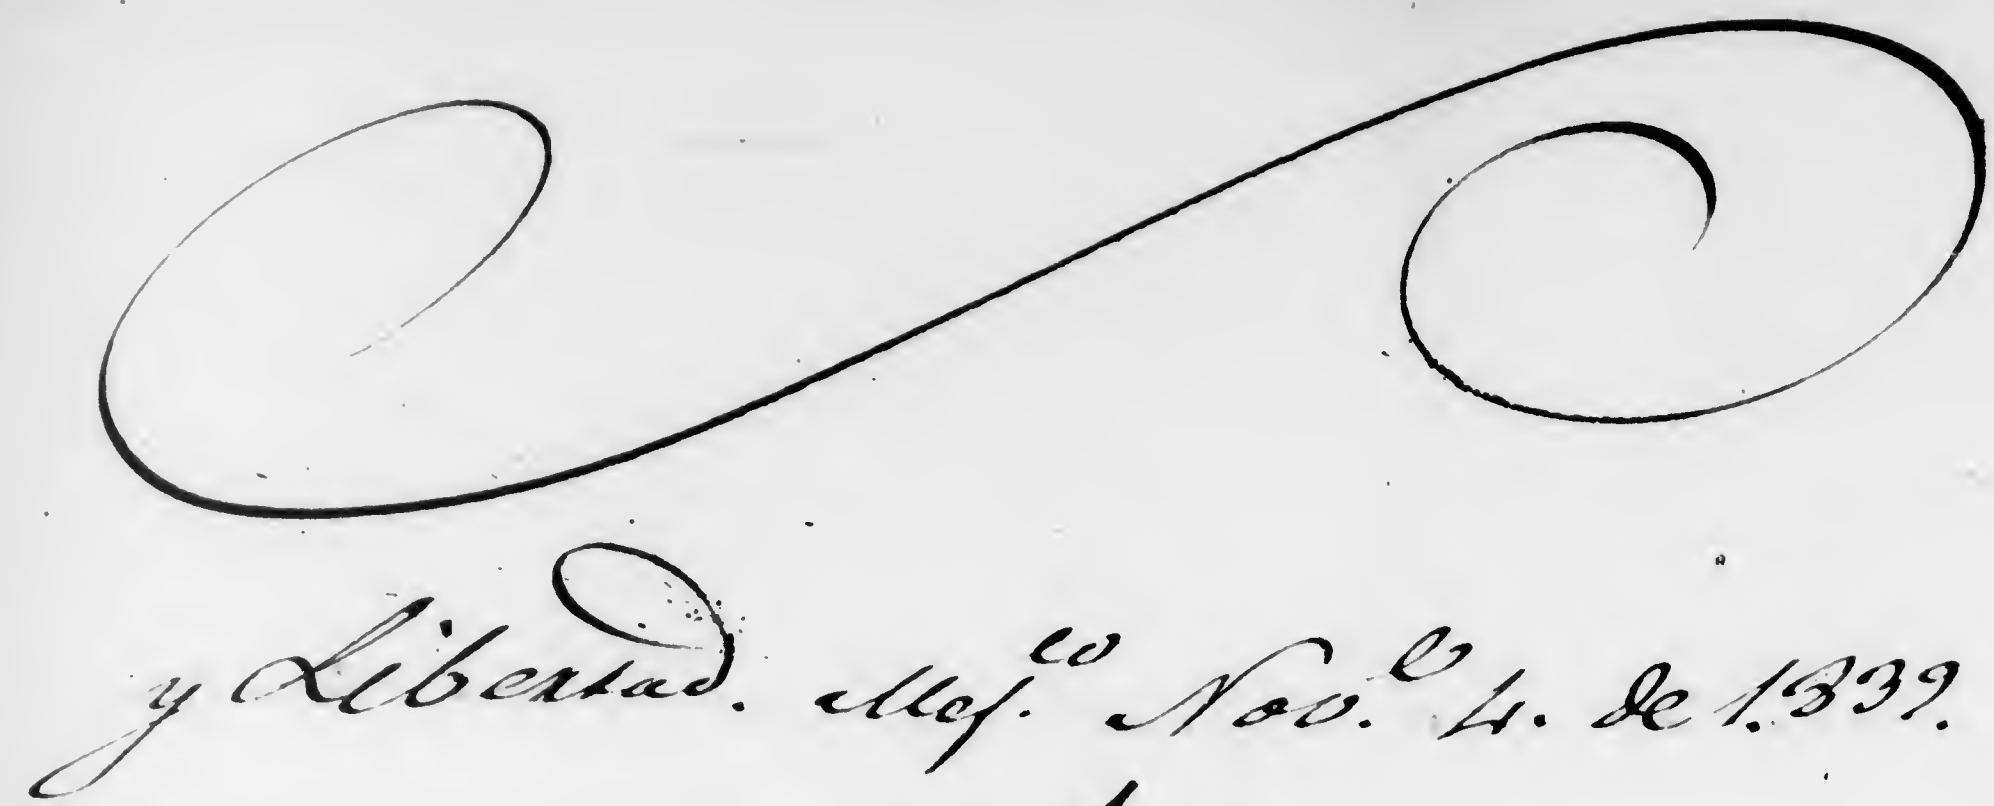 y Libertad. Mej.co Nov.e 4. de 1.839.